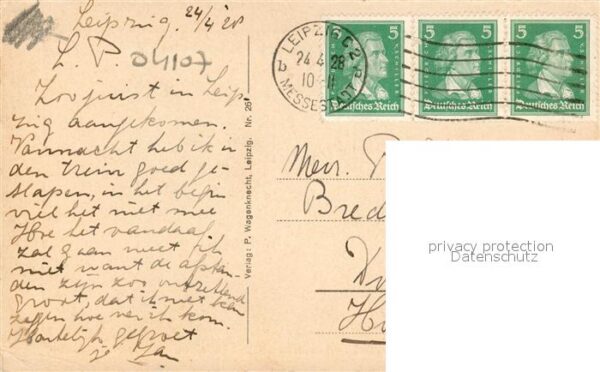 Leipzig, 24/4 '28
L. P.
04107
Zoo juist in Leip
zig aangekomen.
Vannacht heb ik in
den trein goed ge-
slapen, in het begin
viel het niet mee
Hoe het vandaag
zal gaan weet ik
niet want de afstan-
den zijn zoo ontzettend
groot, dat ik niet kan
zeggen hoe ver ik kom.
Hartelijk gegroet
Jan
Verlag: P. Wagenknecht, Leipzig. Nr. 26
LEIPZIG C 2
24.4.28
10-11
MESSESTADT
b
5 5 5
Deutsches Reich Deutsches Reich Deutsches Reich
Bred
privacy protection
Datenschutz